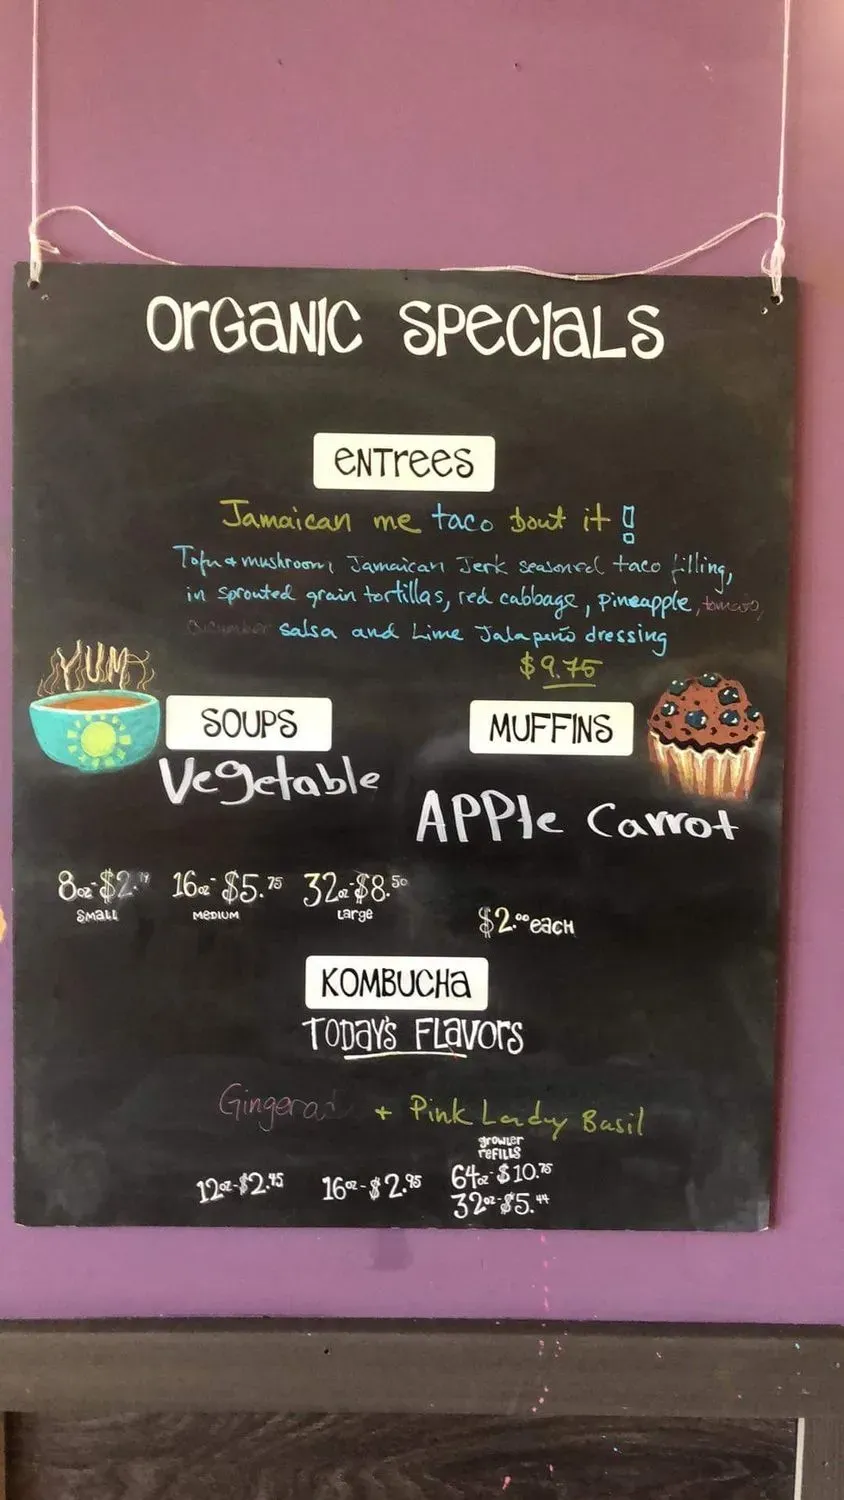 ORGANIC SPECIALS
ENTREES
Jamaican me taco bout it!
Tofu & mushroom, Jamaican Jerk seasoned taco filling,
in sprouted grain tortillas, red cabbage, pineapple, tomato,
cucumber salsa and Lime Jalapeño dressing
$9.75
YUM
SOUPS
Vegetable
8oz-$2.
SMALL
16oz-$5.75
MEDIUM
32oz-$8.50
Large
MUFFINS
APPle Carrot
$2.00 each
KOMBUCHA
TODAY'S FLAVORS
+ Pink Lady Basil
12oz-$2.45
16oz-$2.95
growler
refills
64oz-$10.75
32oz-$5.44